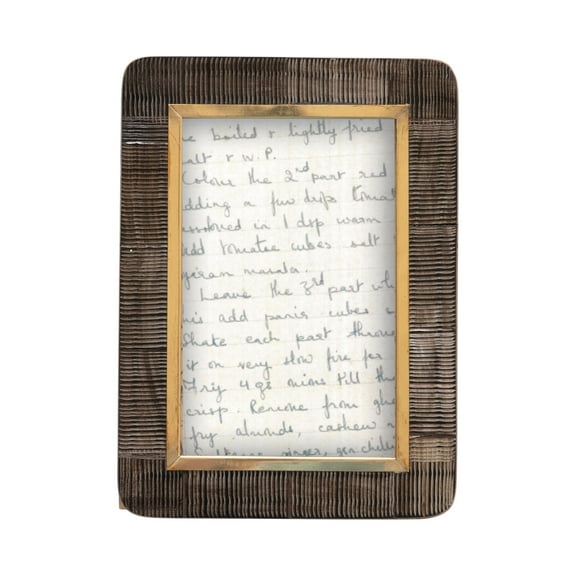 e boiled & lightly fried
alt & W.P.
Colour the 2nd part red
dding a few drops tomat
ssolved in 1 dsp warm
add tomatoe cubes salt
garam masala.
Leave the 3rd part wh
his add panir cubes
Shake each part throu
it on very slow fire for
Fry 4 gs onions till th
crisp. Remove from ghe
fry almonds, cashew n
ginger, gn. chilli